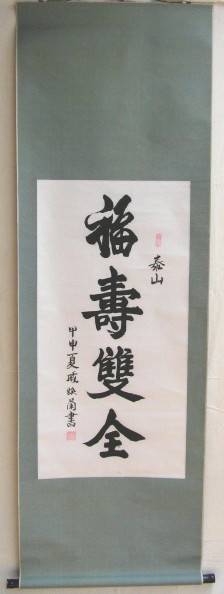 泰山
福壽雙全
甲申夏
書